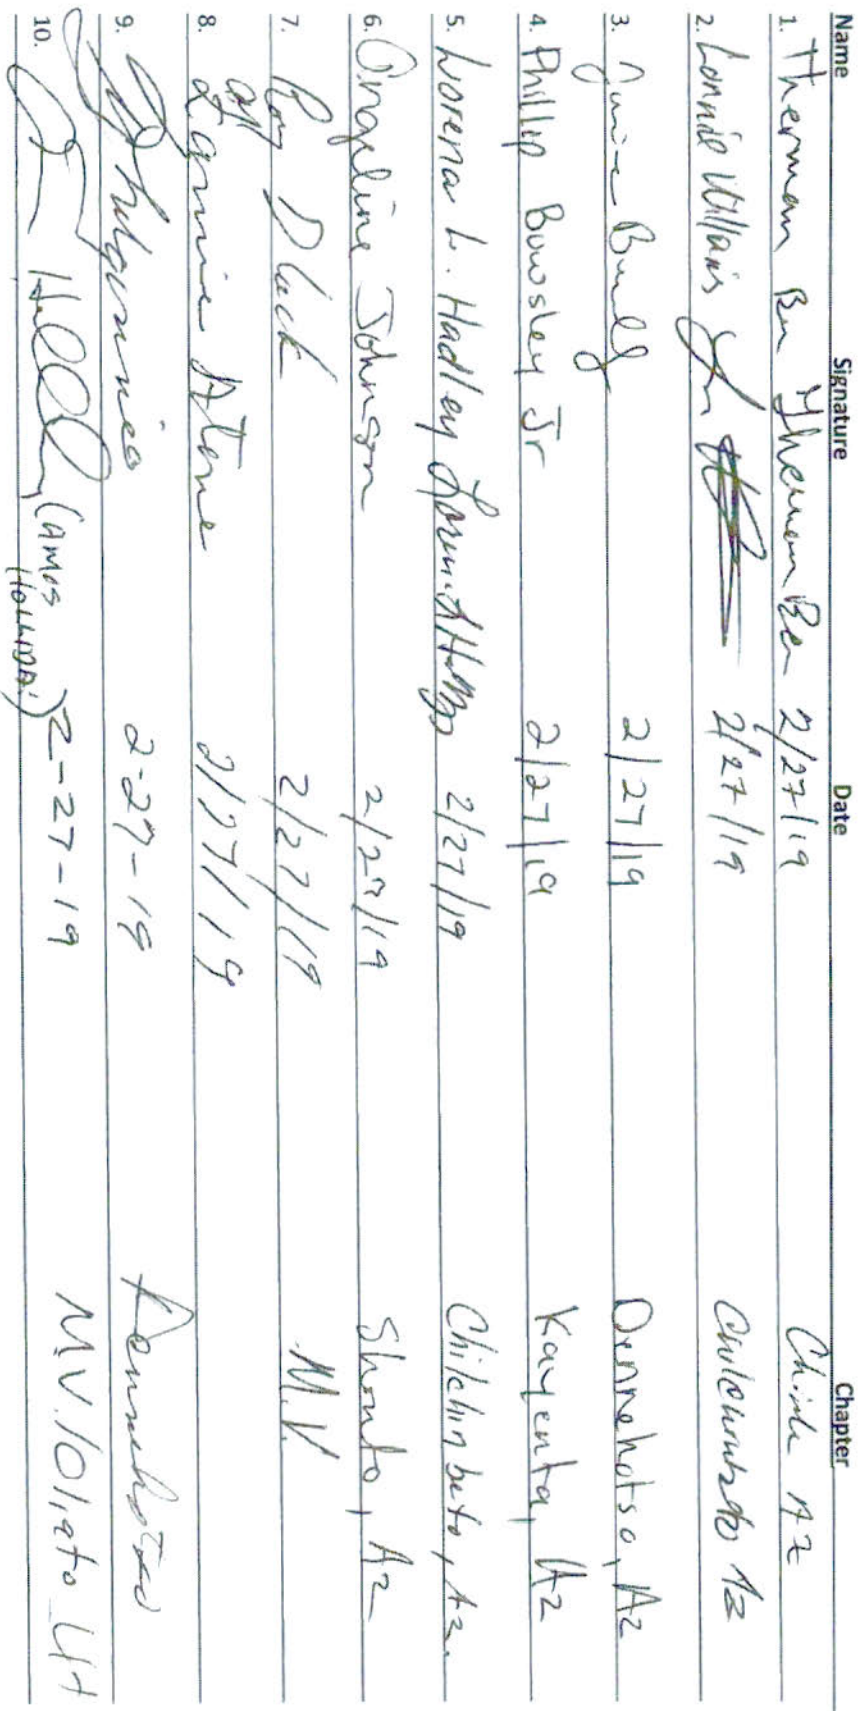 Name Signature Date Chapter
1. Therman Ben Therman Ben 2/27/19 AZ
2. Lonnie Williams 2/27/19 AZ
3. Bully 2/27/19 Dennehotso, Az
4. Phillip Bowsley Jr 2/27/19 Kayenta, Az
5. Lorena L. Hadley 2/27/19 Chilchinbeto, Az.
6. Angeline Johnson 2/27/19 Shonto, Az
7. Roy Black 2/27/19 M.V.
8. Atene 2/27/19
9. 2-27-19 Dennehotso
10. (AMOS HOLLIDAY) 2-27-19 M.V./Oljato UH